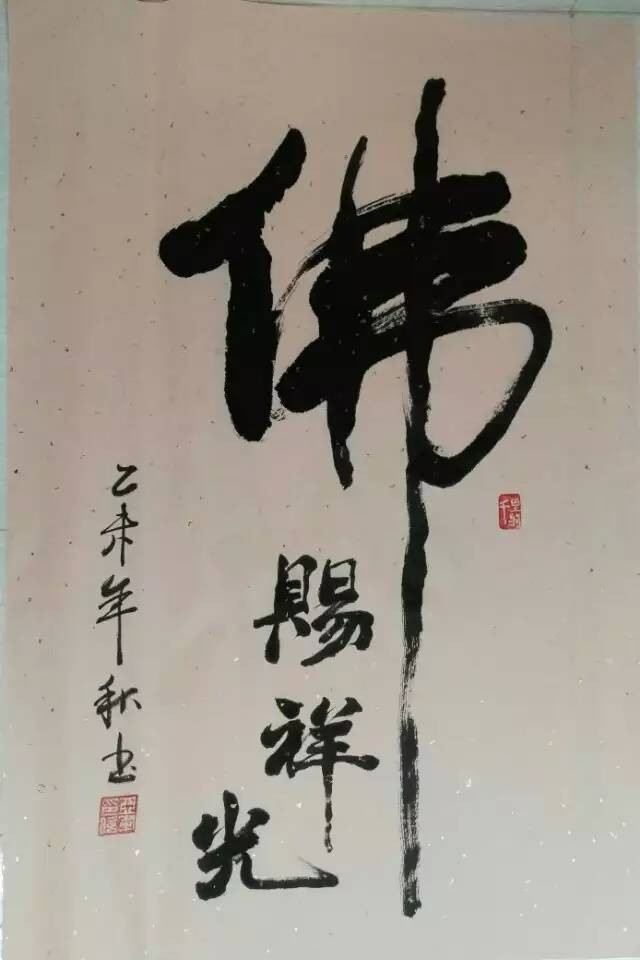 佛
賜祥光
乙未年秋书